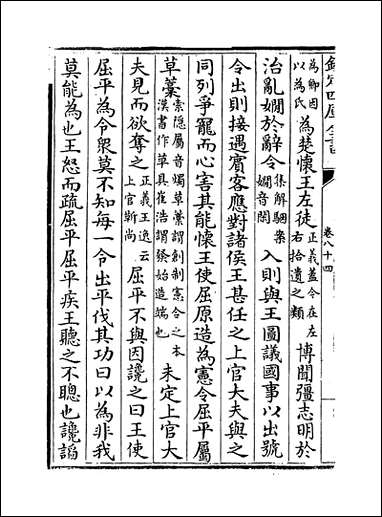 欽定四庫全書
卷八十四
為卿因以為氏為楚懷王左徒正義蓋今在左右拾遺之類博聞彊志明於
治亂嫺於辭令集解駰案嫺音閑入則與王圖議國事以出號
令出則接遇賓客應對諸侯王甚任之上官大夫與之
同列爭寵而心害其能懷王使屈原造為憲令屈平屬
草藁索隱屬音燭草藁謂創制憲令之本漢書作草具崔浩謂發始造端也未定上官大
夫見而欲奪之正義王逸云上官靳尚屈平不與因讒之曰王使
屈平為令衆莫不知每一令出平伐其功曰以為非我
莫能為也王怒而疏屈平屈平疾王聽之不聰也讒謟